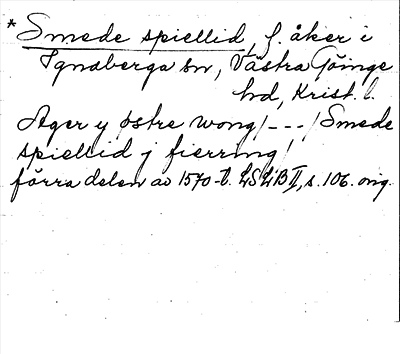 * Smede spiellid, f. åker i
Ignaberga sn, Västra Göinge
hd, Krist. l.
Ager y østre wong /---/ Smede
spiellid j fierring,
förra delen av 1570-t. LSLB II, s. 106. orig.